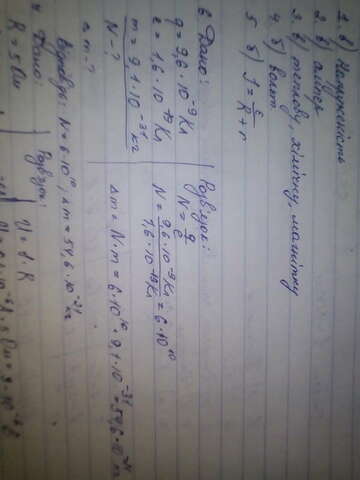 1. в) Напруженість
2. в) ампер
3. в) теплову, хімічну, магнітку
4. б) вольт
5 б) I = ε / R + r
6 Дано:
q = 9,6 · 10⁻⁹ Кл
e = 1,6 · 10⁻¹⁹ Кл
m = 9,1 · 10⁻³¹ кг
N - ?
Δm - ?
Розв'язок:
N = q / e
N = 9,6 · 10⁻⁹ Кл / 1,6 · 10⁻¹⁹ Кл = 6 · 10¹⁰
Δm = N · m = 6 · 10¹⁰ · 9,1 · 10⁻³¹ = 54,6 · 10⁻²¹ кг
Відповідь: N = 6 · 10¹⁰, Δm = 54,6 · 10⁻²¹ кг
Дано:
R = 5 Ом
Розв'язок:
U = I · R